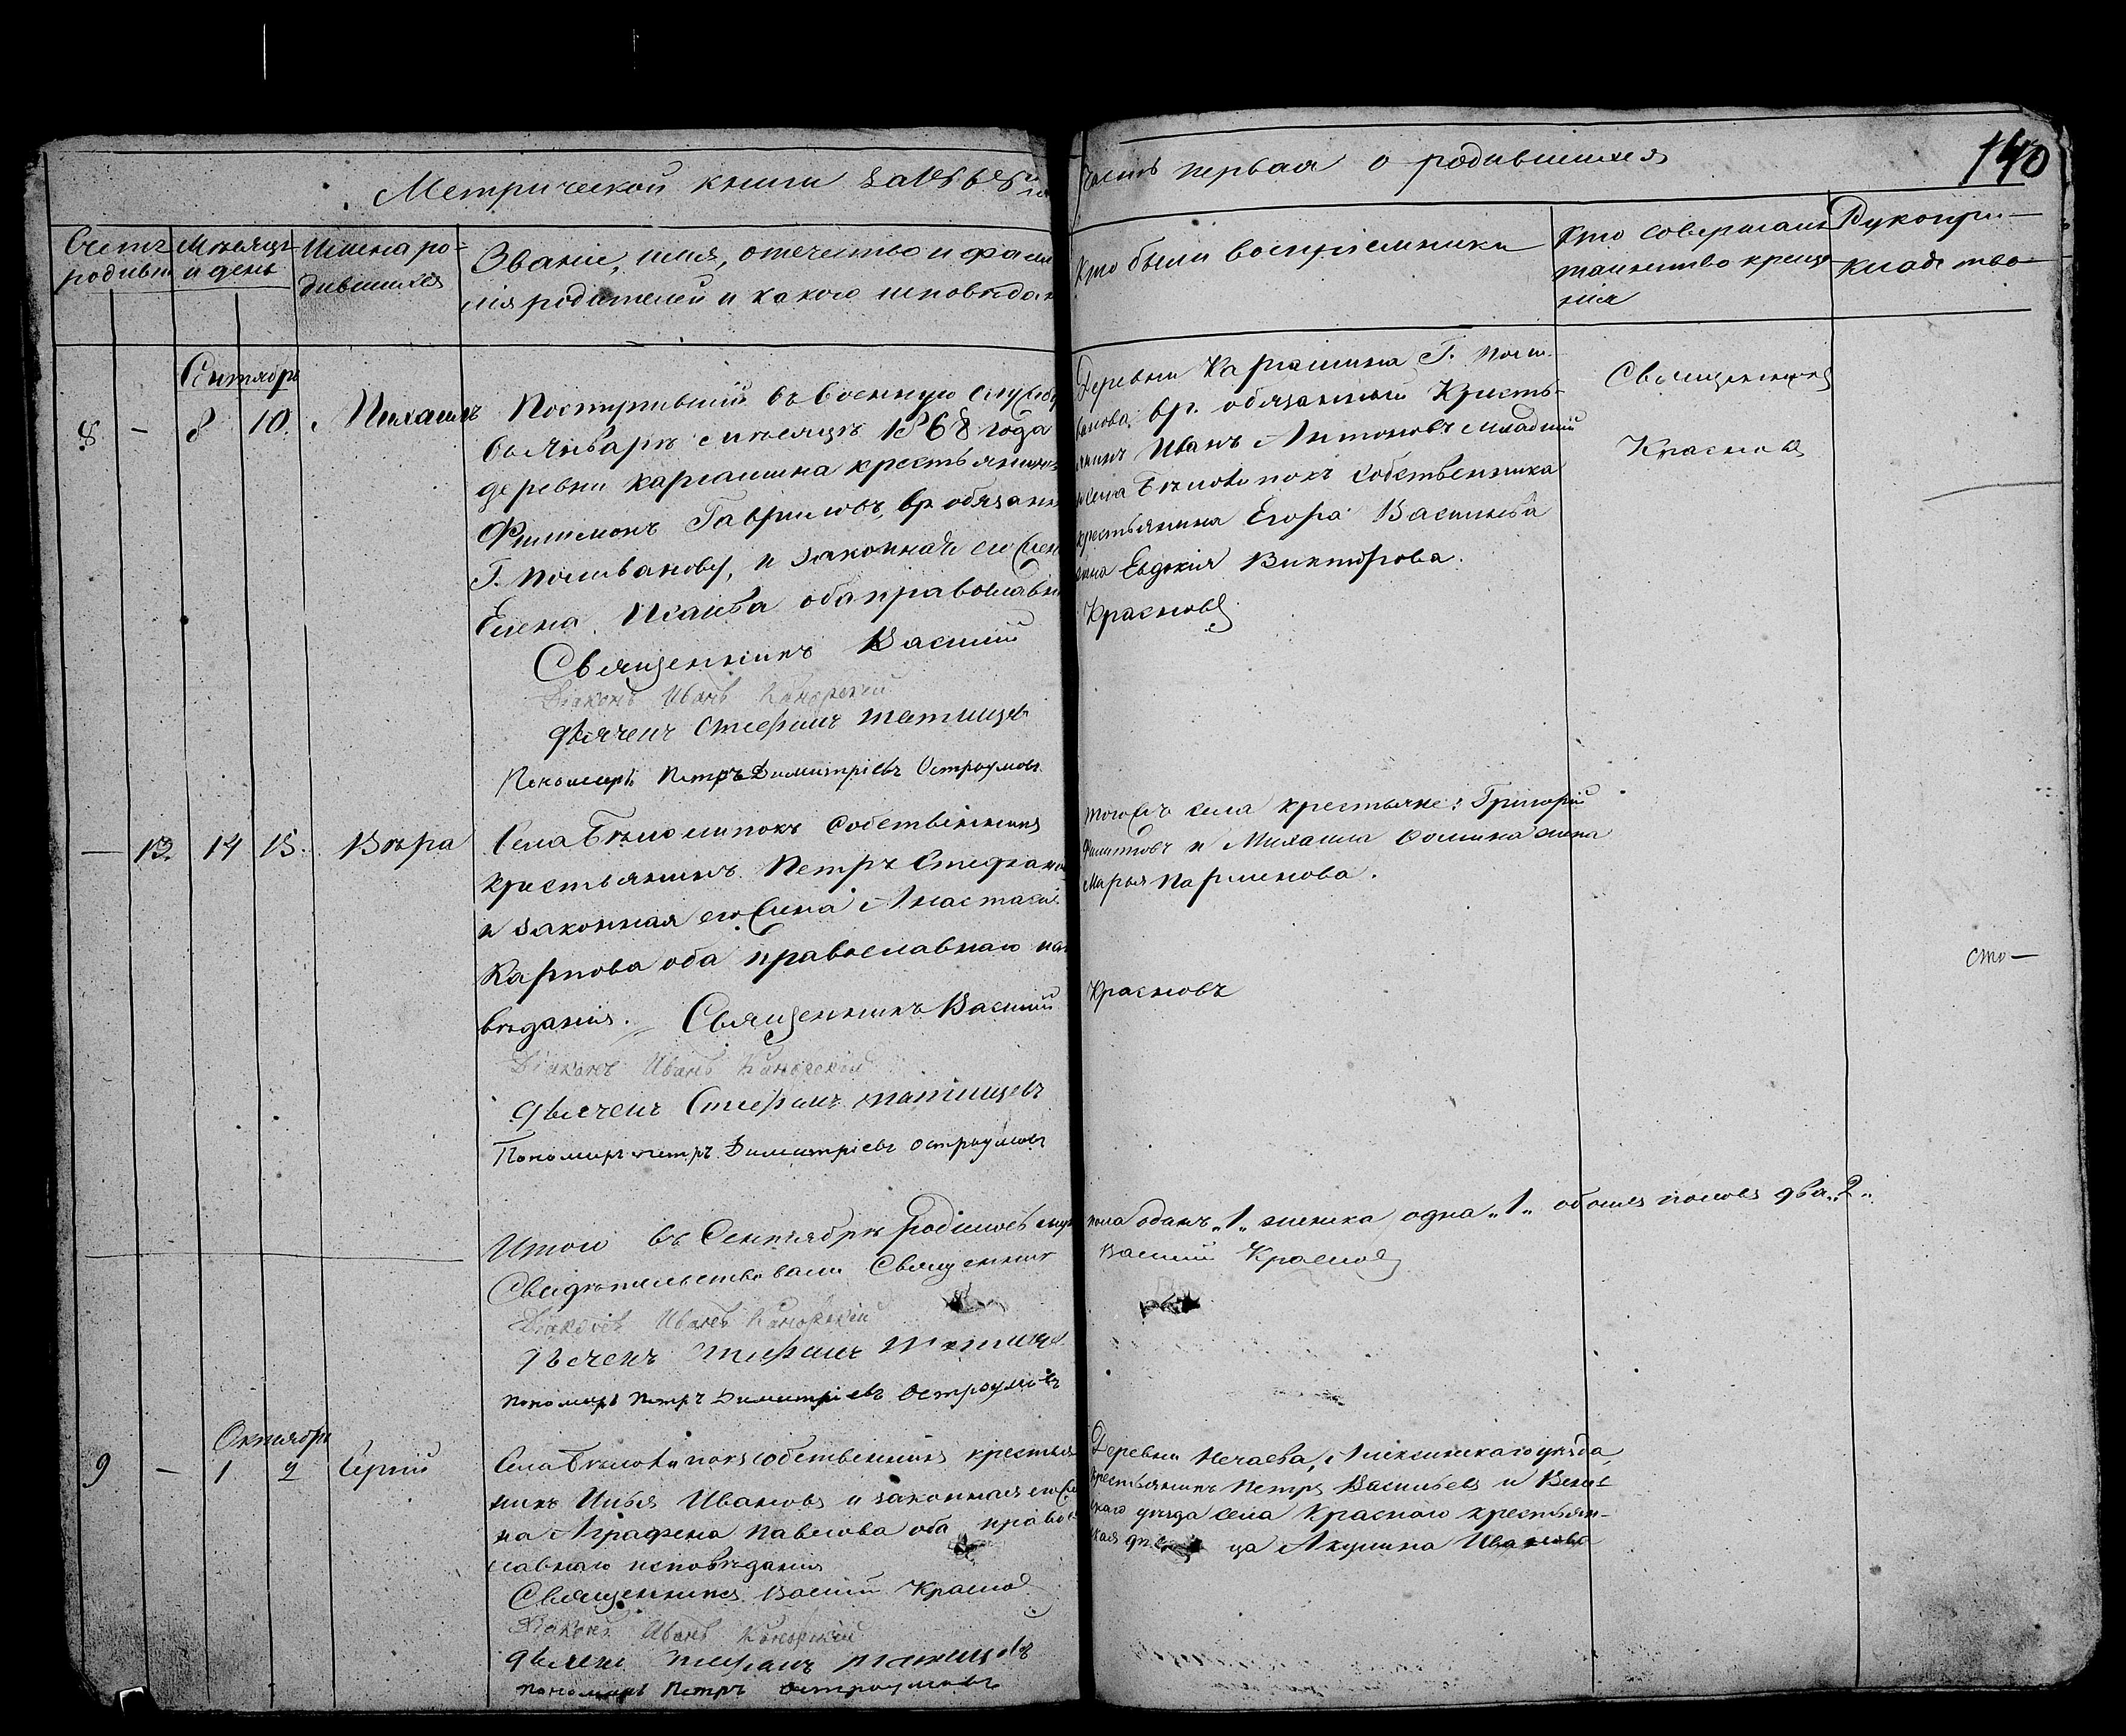 Метрической книги за 1868й
часть первая о родившихся
140
Счетъ родивш
Мѣсяцъ и день
Имена родившихся
Званіе, имя, отечество и фами
лія родителей и какого исповѣдан
Кто были воспріемники
Кто совершалъ
таинство креще
нія
Рукопри-
кладство
Сентябрь
8 – 8 10. Михаилъ
Поступившій въ военную службу
въ Январѣ мѣсяцѣ 1868 года
деревни Каргашина крестьянинъ
Филимонъ Гавриловъ, вр. обязанн
Г. Поливанову, и законная его жен
Елена Исаева оба православн
Священникъ Василій
Діаконъ Иванъ
Дьячекъ Стефанъ Татищевъ
Пономарь Петръ Димитріевъ Остроумовъ
Деревни Каргашина Г. Поли-
ванова, вр. обязанный Кресть-
янинъ Иванъ Антоновъ младшій
и села Бѣлоомутъ собственника
крестьянина Егора Васильева
жена Евдокія Викторова.
Красновъ
Священникъ
Красновъ
– 13. 14 15. Вѣра
Села собственникъ
крестьянинъ Петръ Стефано
и законная его жена Анастасія
Карпова оба православнаго испо
вѣданія. Священникъ Василій
Діаконъ Иванъ
Дьячекъ Стефанъ Татищевъ
Пономарь Петръ Димитріевъ Остроумовъ
тогожъ села крестьяне: Григорій
Филиповъ и Михаила Фомина жена
Марья Парменова.
Красновъ
сто –
Итого въ Сентябрѣ родилось муж
пола одинъ „1„ женска одна „1„ обоихъ половъ два „2„
Свидѣтельствовали Священникъ
Василій Красновъ
Діаконъ Иванъ
Дьячекъ Стефанъ Татищевъ
Пономарь Петръ Димитріевъ Остроумовъ
Октябрь
9 – 1 2 Сергій
Села собственникъ крестья
нинъ Илья Ивановъ и законная его же
на Аграфена Павлова оба правос
лавнаго исповѣданія
Священникъ Василій Красновъ
Діаконъ Иванъ
Дьячекъ Стефанъ Татищевъ
Пономарь Петръ Остроумовъ
Деревни Нечаева, Алексинскаго уѣзда,
крестьянинъ Петръ Васильевъ и Вене-
скаго уѣзда села Краснаго крестьян-
ская дѣвица Акулина Иванова